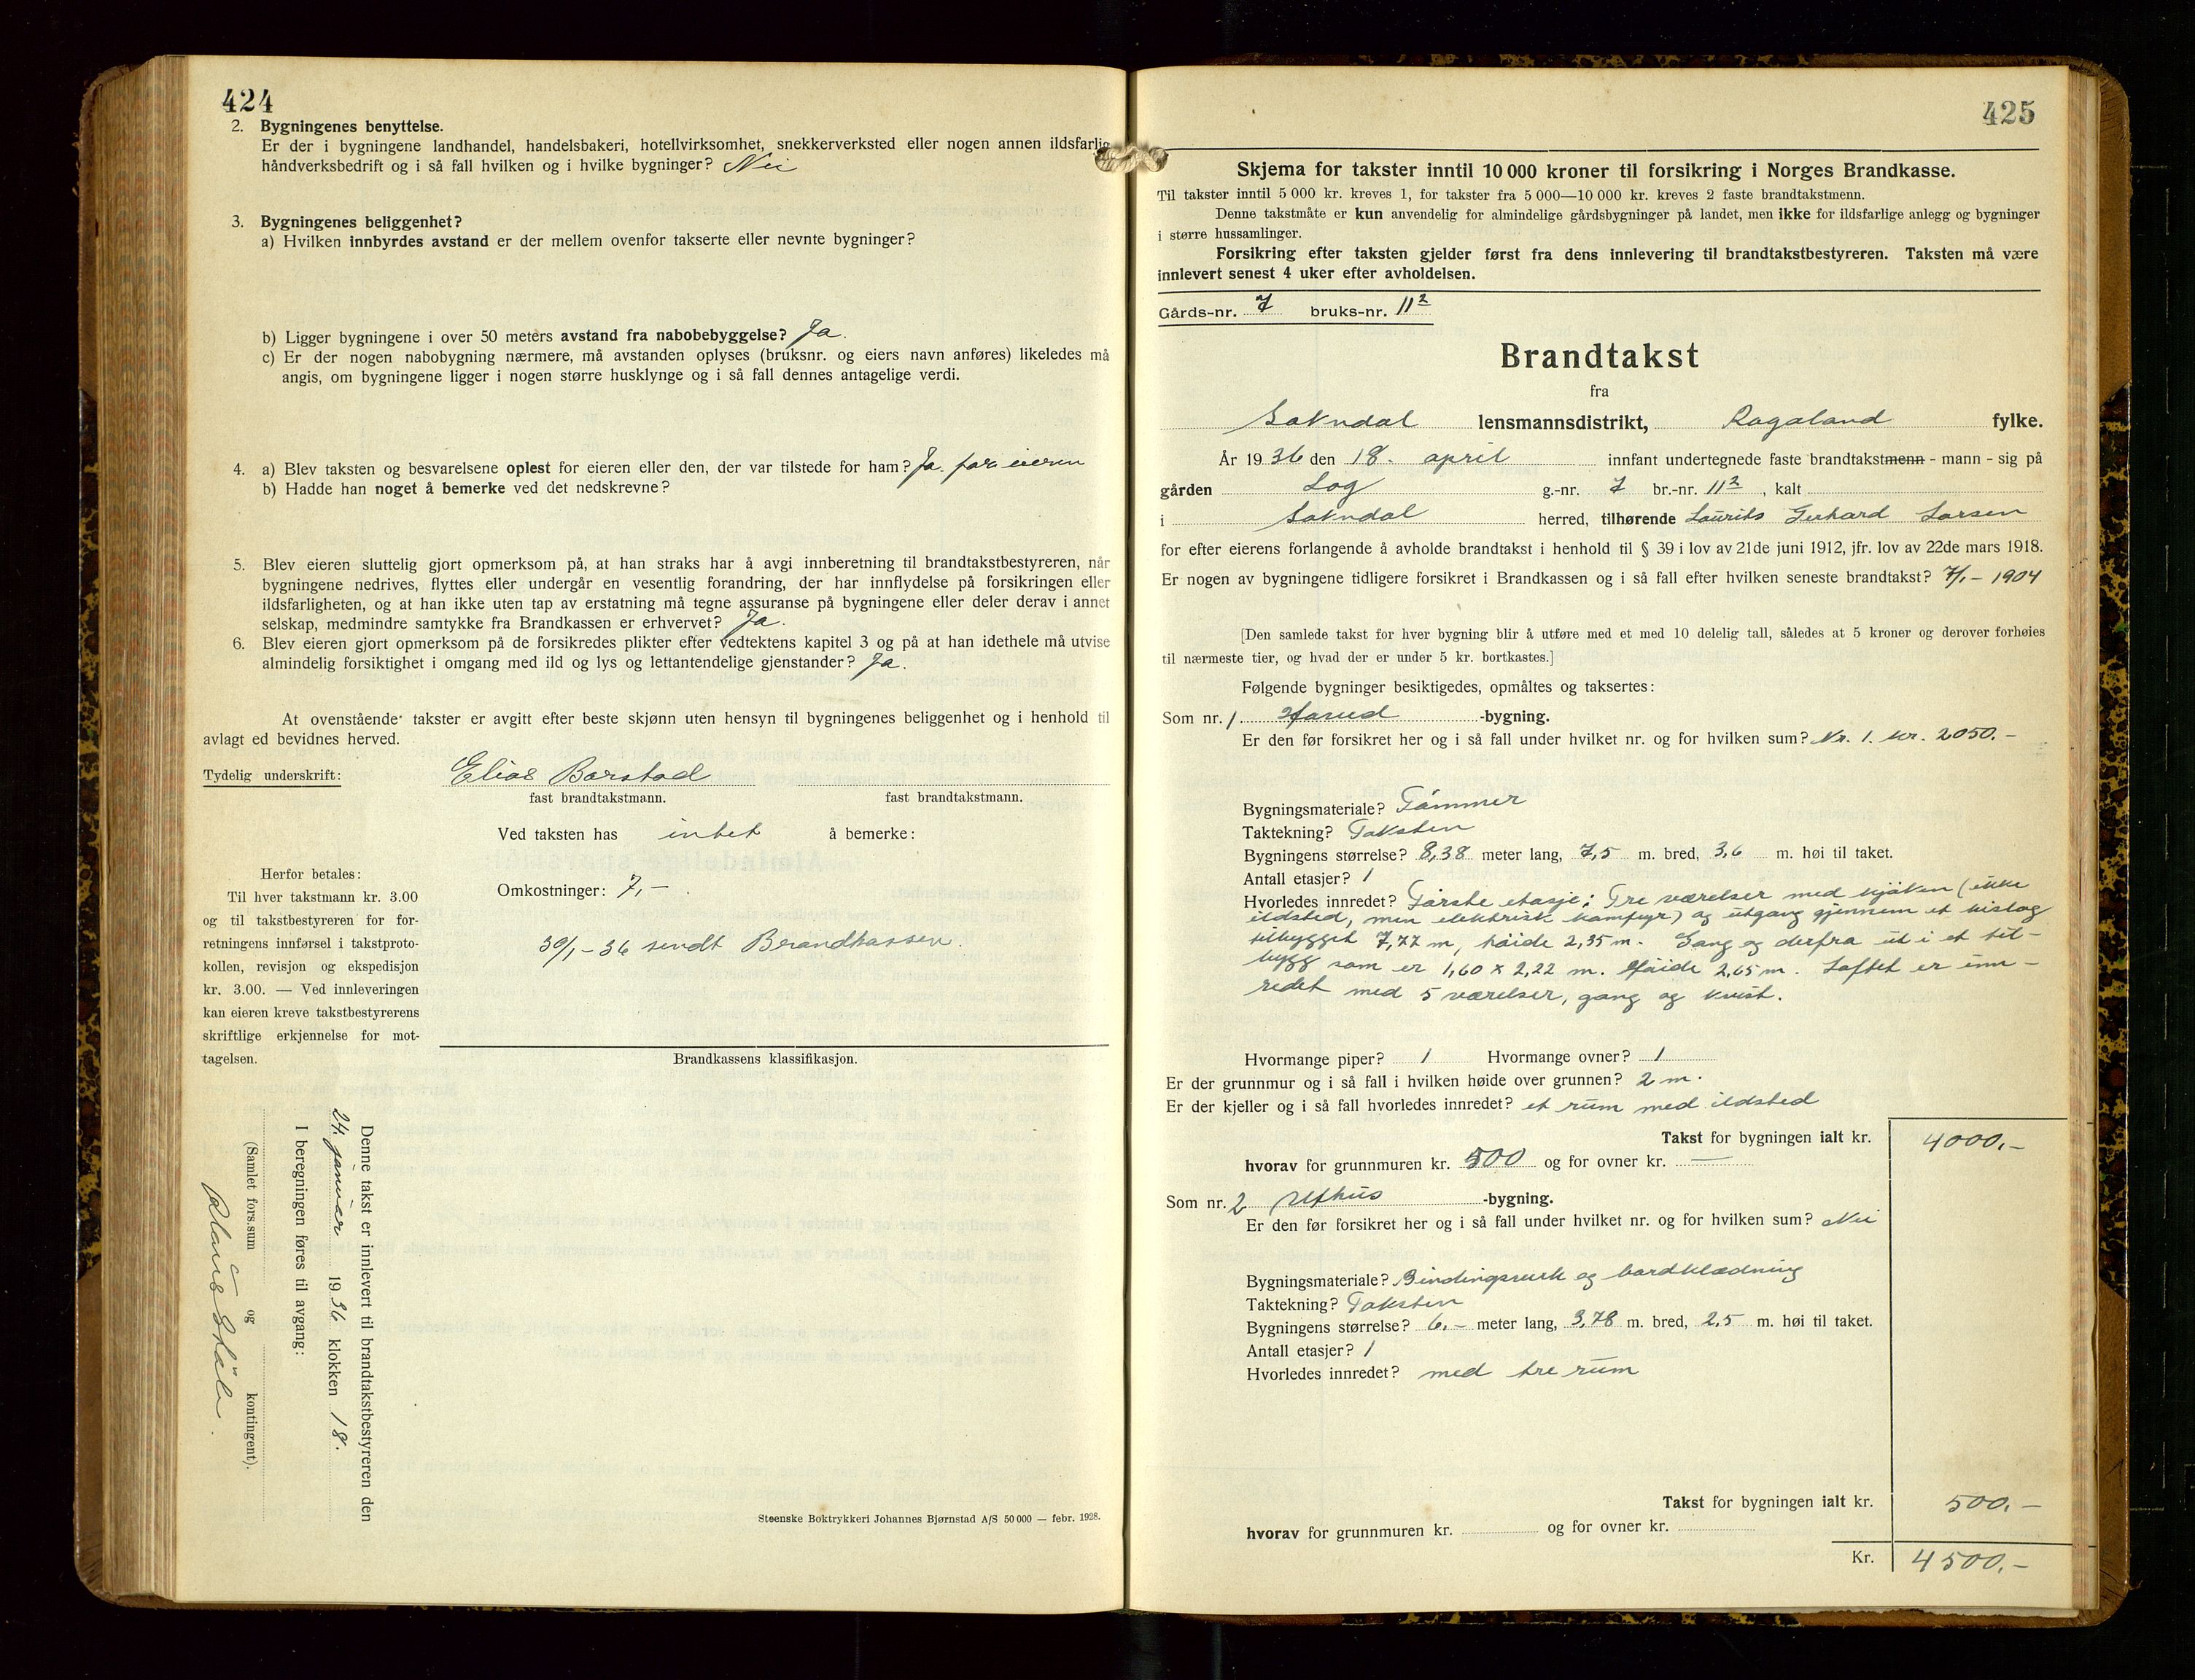 424
2. Bygningenes benyttelse.
Er der i bygningene landhandel, handelsbakeri, hotellvirksomhet, snekkerverksted eller nogen annen ildsfarlig
håndverksbedrift og i så fall hvilken og i hvilke bygninger? Nei
3. Bygningenes beliggenhet?
a) Hvilken innbyrdes avstand er der mellem ovenfor takserte eller nevnte bygninger?
b) Ligger bygningene i over 50 meters avstand fra nabobebyggelse? Ja.
c) Er der nogen nabobygning nærmere, må avstanden oplyses (bruksnr. og eiers navn anføres) likeledes må
angis, om bygningene ligger i nogen større husklynge og i så fall dennes antagelige verdi.
4. a) Blev taksten og besvarelsene oplest for eieren eller den, der var tilstede for ham? Ja. for eieren
b) Hadde han noget å bemerke ved det nedskrevne?
5. Blev eieren sluttelig gjort opmerksom på, at han straks har å avgi innberetning til brandtakstbestyreren, når
bygningene nedrives, flyttes eller undergår en vesentlig forandring, der har innflydelse på forsikringen eller
ildsfarligheten, og at han ikke uten tap av erstatning må tegne assuranse på bygningene eller deler derav i annet
selskap, medmindre samtykke fra Brandkassen er erhvervet? Ja.
6. Blev eieren gjort opmerksom på de forsikredes plikter efter vedtektens kapitel 3 og på at han idethele må utvise
almindelig forsiktighet i omgang med ild og lys og lettantendelige gjenstander? Ja.
At ovenstående takster er avgitt efter beste skjønn uten hensyn til bygningenes beliggenhet og i henhold til
avlagt ed bevidnes herved.
Tydelig underskrift: Elias Barstad
fast brandtakstmann. fast brandtakstmann.
Ved taksten has intet å bemerke:
Omkostninger: 7,-.
30/1-36 sendt Brandkassen.
Herfor betales:
Til hver takstmann kr. 3.00
og til takstbestyreren for for-
retningens innførsel i takstproto-
kollen, revisjon og ekspedisjon
kr. 3.00. — Ved innleveringen
kan eieren kreve takstbestyrerens
skriftlige erkjennelse for mot-
tagelsen.
Brandkassens klassifikasjon.
Denne takst er innlevert til brandtakstbestyreren den
24. januar 1936 klokken 18.
I beregningen føres til avgang:
(Samlet fors.sum og kontingent).
Steenske Boktrykkeri Johannes Bjørnstad A/S 50 000 — febr. 1928.
425
Skjema for takster inntil 10 000 kroner til forsikring i Norges Brandkasse.
Til takster inntil 5 000 kr. kreves 1, for takster fra 5 000—10 000 kr. kreves 2 faste brandtakstmenn.
Denne takstmåte er kun anvendelig for almindelige gårdsbygninger på landet, men ikke for ildsfarlige anlegg og bygninger
i større hussamlinger.
Forsikring efter taksten gjelder først fra dens innlevering til brandtakstbestyreren. Taksten må være
innlevert senest 4 uker efter avholdelsen.
Gårds-nr. 7 bruks-nr. 11²
Brandtakst
fra
Sokndal lensmannsdistrikt, Rogaland fylke.
År 1936 den 18. april innfant undertegnede faste brandtakstmenn - mann - sig på
gården Log g.-nr. 7 br.-nr. 11², kalt
i Sokndal herred, tilhørende Laurits Gerhard Larsen
for efter eierens forlangende å avholde brandtakst i henhold til § 39 i lov av 21de juni 1912, jfr. lov av 22de mars 1918.
Er nogen av bygningene tidligere forsikret i Brandkassen og i så fall efter hvilken seneste brandtakst? 7/1-1904
[Den samlede takst for hver bygning blir å utføre med et med 10 delelig tall, således at 5 kroner og derover forhøies
til nærmeste tier, og hvad der er under 5 kr. bortkastes.]
Følgende bygninger besiktigedes, opmåltes og taksertes:
Som nr. 1. Hoved -bygning.
Er den før forsikret her og i så fall under hvilket nr. og for hvilken sum? Nr. 1. kr. 2050.-
Bygningsmateriale? Tømmer
Taktekning? Taksten
Bygningens størrelse? 8,38 meter lang, 7,5 m. bred, 3,6 m. høi til taket.
Antall etasjer? 1
Hvorledes innredet? Første etasje: Tre værelser med kjøken (ikke
ildsted, men elektrisk komfyr) og utgang gjennem et bislag
tilbygget 7,77 m, høide 2,35 m. Gang og derfra ut i et til-
bygg som er 1,60 x 2,22 m. Høide 2,65 m. Loftet er inn-
redet med 5 værelser, gang og kvist.
Hvormange piper? 1 Hvormange ovner? 1
Er der grunnmur og i så fall i hvilken høide over grunnen? 2 m.
Er der kjeller og i så fall hvorledes innredet? et rum med ildsted
Takst for bygningen ialt kr. 4000,-
hvorav for grunnmuren kr. 500 og for ovner kr. —
Som nr. 2 Uthus -bygning.
Er den før forsikret her og i så fall under hvilket nr. og for hvilken sum? Nei
Bygningsmateriale? Bindingsverk og bordklædning
Taktekning? Taksten
Bygningens størrelse? 6,- meter lang, 3,78 m. bred, 2,5 m. høi til taket.
Antall etasjer? 1
Hvorledes innredet? med tre rum
Takst for bygningen ialt kr. 500,-
hvorav for grunnmuren kr. og for ovner kr.
Kr. 4500,-